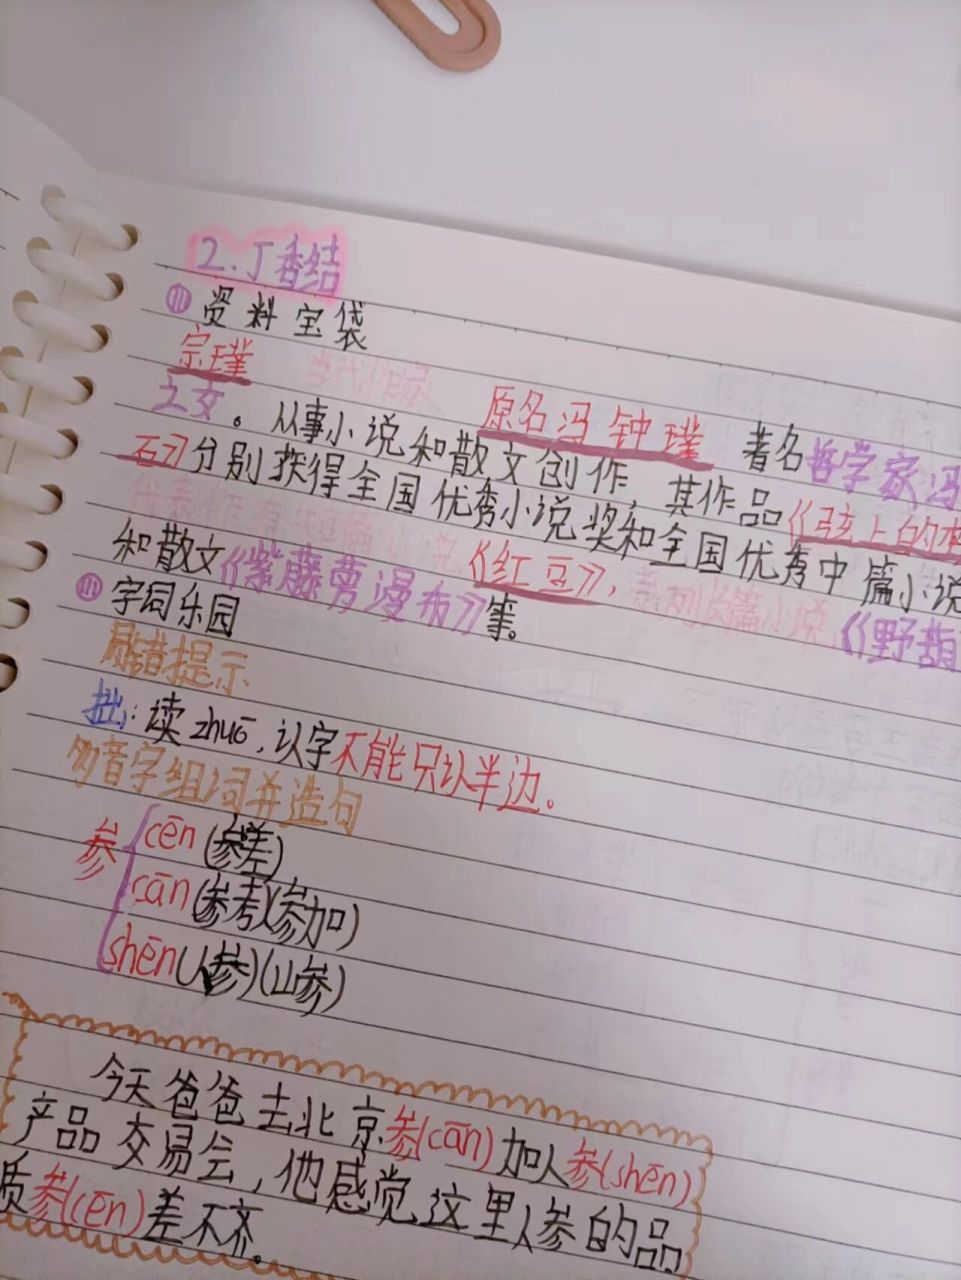 2.丁香结
⑪资料宝袋
宗璞 当代作家 原名冯钟璞 著名哲学家冯
之女。从事小说和散文创作,其作品《弦上的
石》分别获得全国优秀小说奖和全国优秀中篇小说
代表作有短篇小说《红豆》,系列长篇小说,《野葫
和散文《紫藤萝瀑布》等。
⑪字词乐园
易错提示
拙:读zhuō,认字不能只认半边。
多音字组词并造句
参 cēn(参差)
cān(参考)(参加)
shēn(人参)(山参)
今天爸爸去北京参(cān)加人参(shēn)
产品交易会,他感觉这里人参的品
质参(cēn)差不齐。